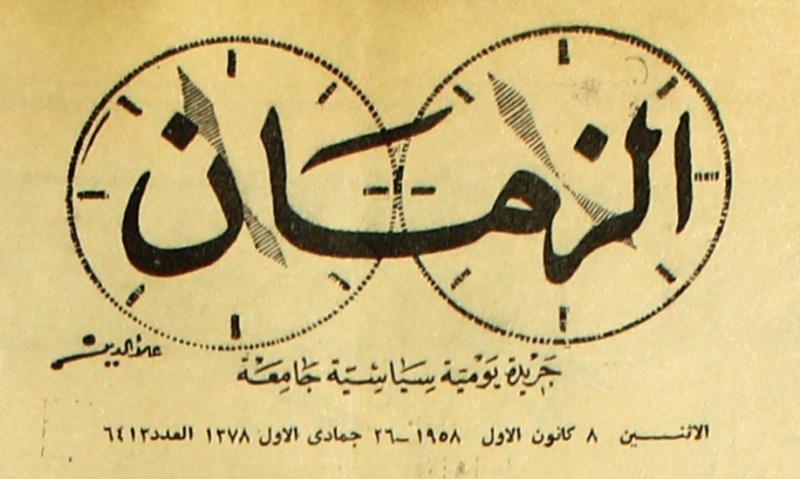 الزمان
علاء الدين
جَرْيدة يَوْمية سِيَاسِيَّة جَامِعَة
الاثنـــين ٨ كانون الاول ١٩٥٨ – ٢٦ جمادى الاول ١٣٧٨ العدد ٦٤١٣